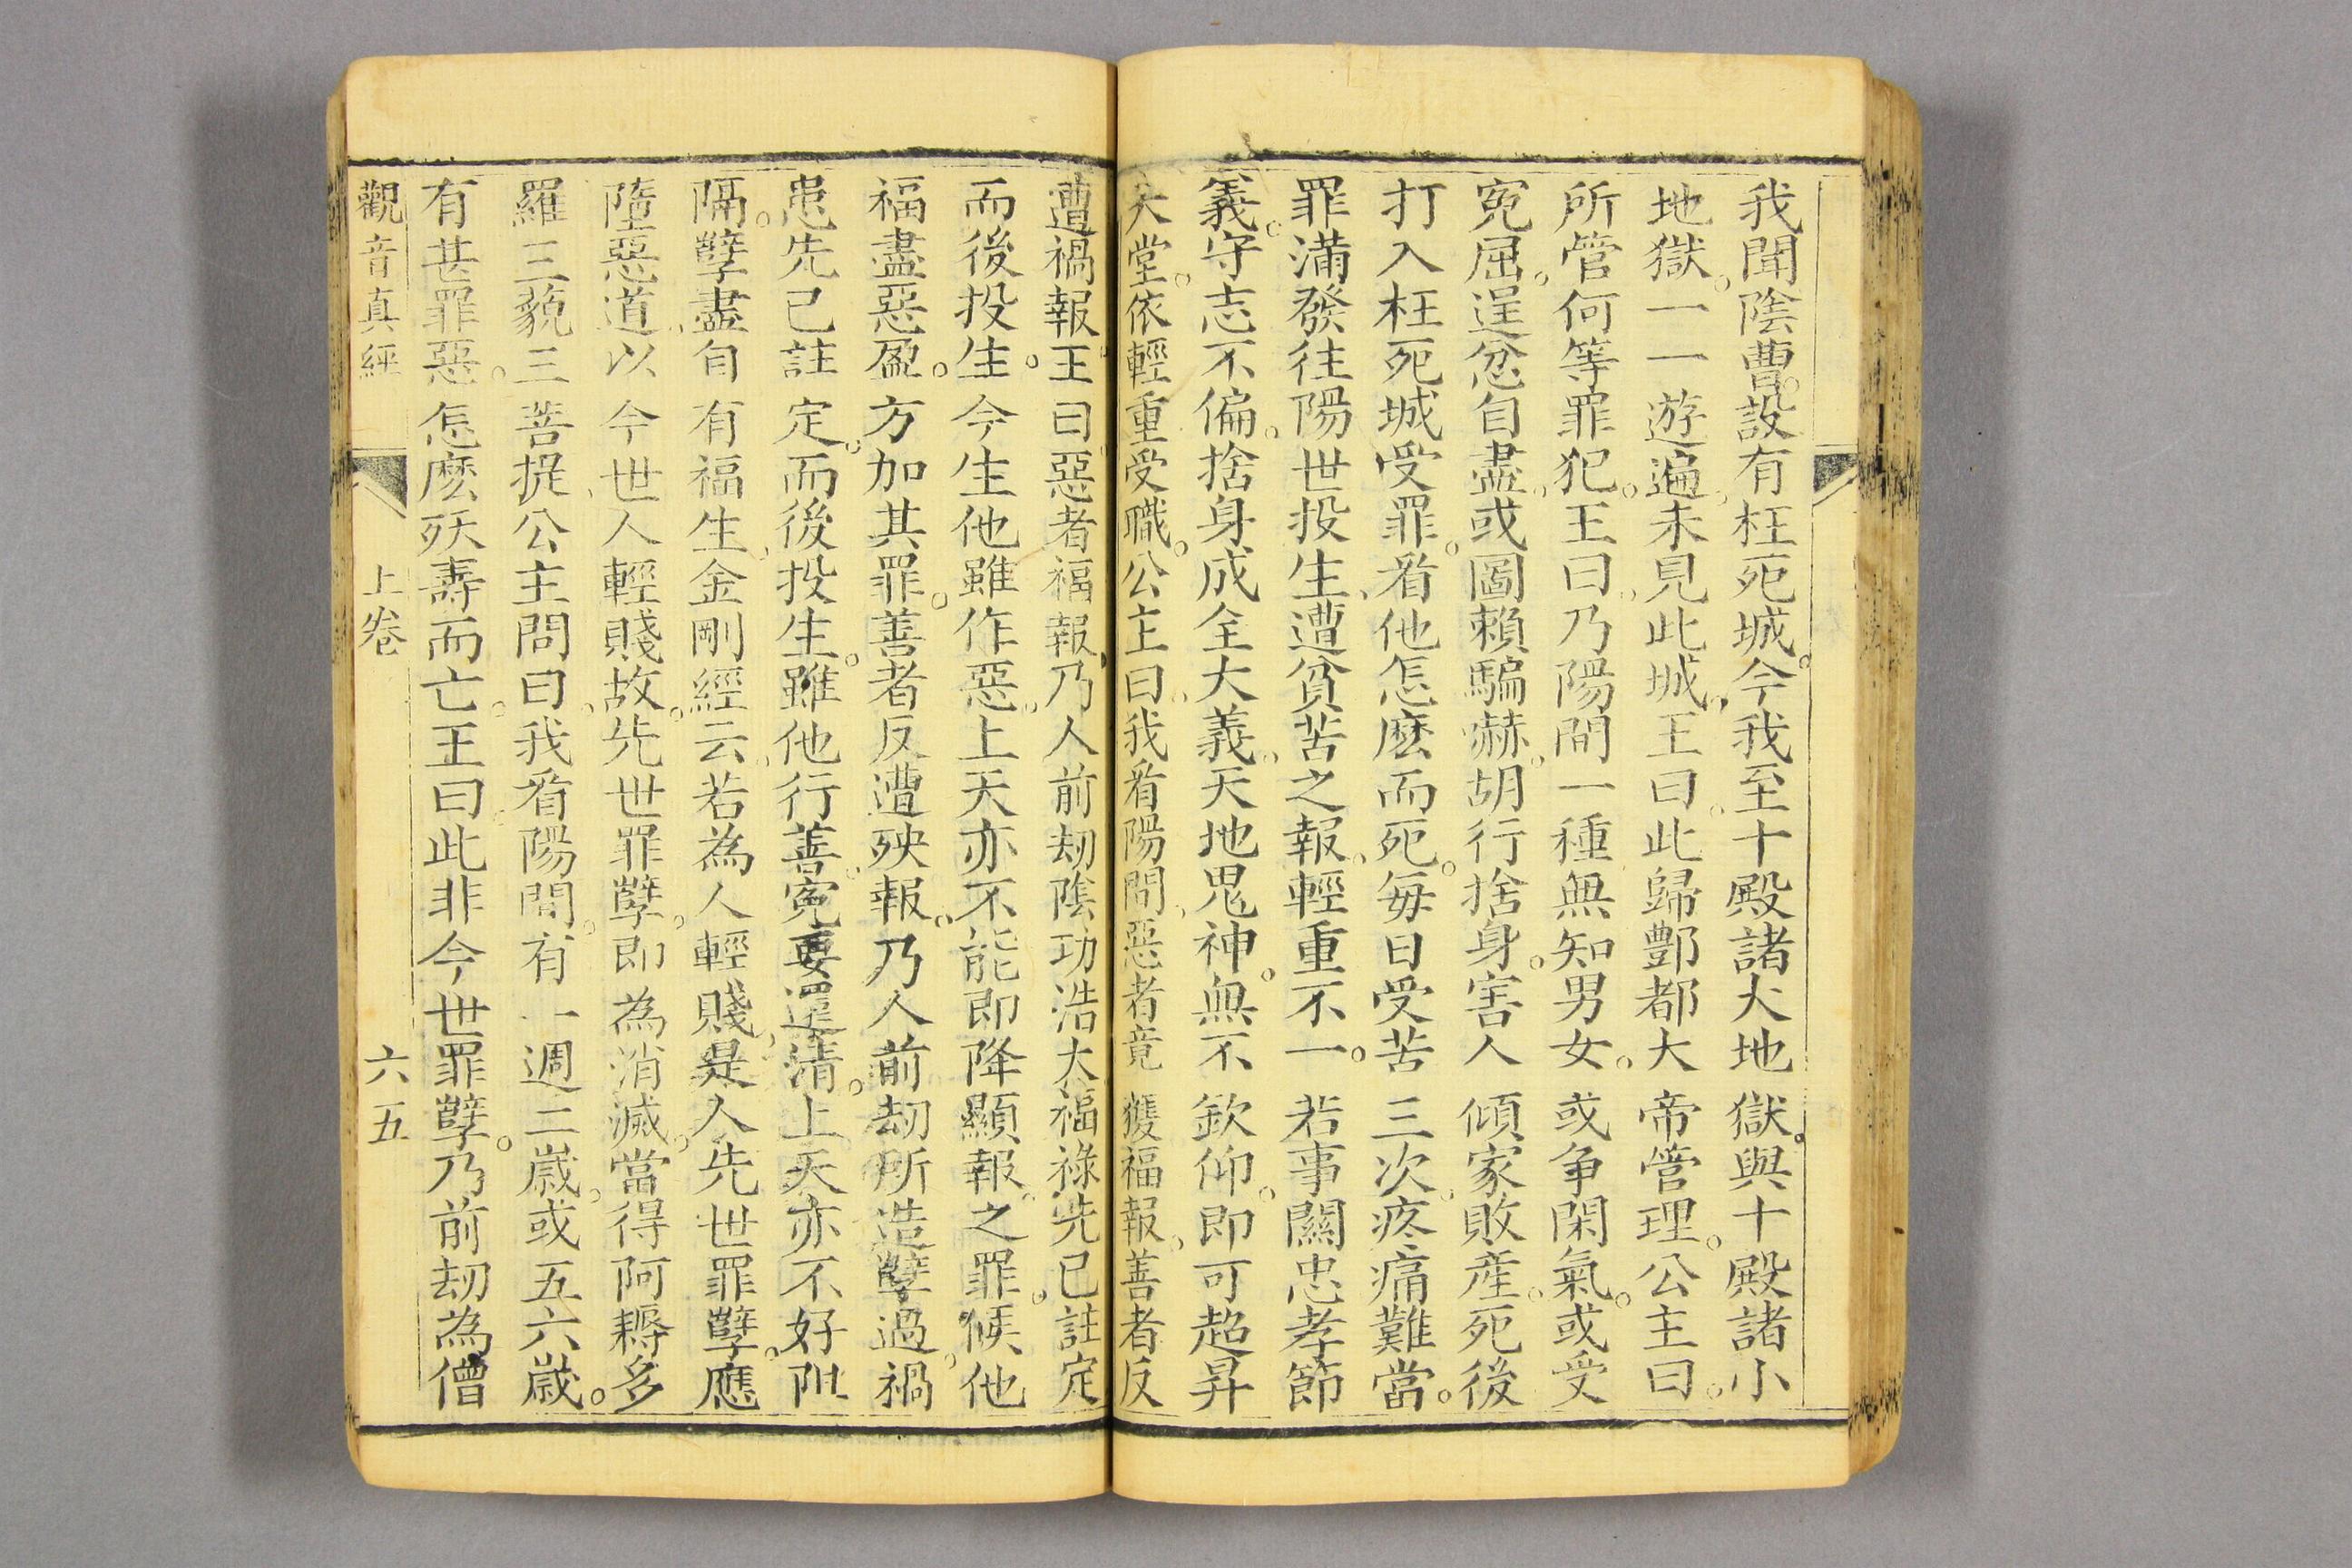 我聞陰曹設有枉死城今我至十殿諸大地獄與十殿諸小
地獄一一遊遍未見此城王曰此歸酆都大帝管理公主曰
所管何等罪犯王曰乃陽間一種無知男女或争閑氣或受
寃屈逞忿自盡或圖賴騙嚇胡行捨身害人傾家敗產死後
打入枉死城受罪看他怎麽而死每日受苦三次疼痛難當
罪滿發往陽世投生遭貧苦之報輕重不一若事關忠孝節
義守志不偏捨身成全大義天地鬼神無不欽仰即可超昇
天堂依輕重受職公主曰我看陽間惡者竟獲福報善者反
遭禍報王曰惡者福報乃人前刼陰功浩大福祿先已註定
而後投生今生他雖作惡上天亦不能即降顯報之罪候他
福盡惡盈方加其罪善者反遭殃報乃人前刼所造孽過禍
患先已註定而後投生雖他行善寃要還清上天亦不好阻
隔孽盡自有福生金剛經云若為人輕賤是人先世罪孽應
墮惡道以今世人輕賤故先世罪孽即為消滅當得阿耨多
羅三藐三菩提公主問曰我看陽間有一週二歲或五六歲
有甚罪惡怎麽殀壽而亡王曰此非今世罪孽乃前刼為僧
觀音真經 上卷 六五